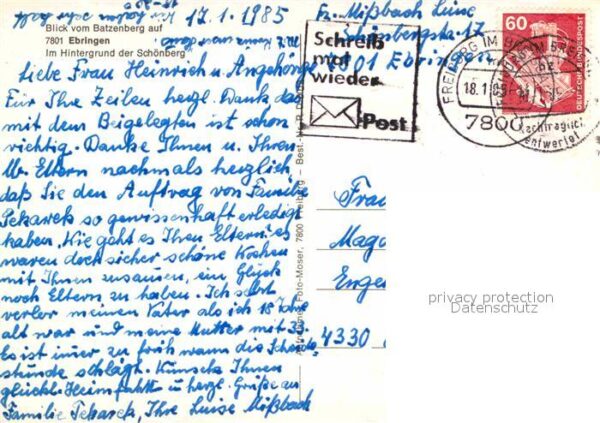 17.1.1985
Blick vom Batzenberg auf
7801 Ebringen
Im Hintergrund der Schönberg
Liebe Frau Heinrich u. Angehörige
Für Ihre Zeilen herzl. Dank das
mit dem Beigelegten ist schon
richtig. Danke Ihnen u. Ihren
lb. Eltern nochmals herzlich,
daß Sie den Auftrag von Familie
Pekarek so gewissenhaft erledigt
haben. Wie geht es Ihren Eltern, es
waren doch sicher schöne Wochen
mit Ihnen zusammen, ein Glück
noch Eltern zu haben. Ich selbst
verlor meinen Vater als ich 18 Jahre
alt war und meine Mutter mit
Es ist immer zu früh wann die
stunde schlägt. Wünsche Ihnen
glückl. Heimfahrt u. herzl. Grüße an
Familie Pekarek, Ihre Luise Mißbach
Fr. Mißbach Luise
17
7801 Ebringen
Schreib
mal
wieder
Post
60
DEUTSCHE BUNDESPOST
FREIBURG IM BREISGAU
18.1.85
7800
Nachträglich
entwertet
Foto-Moser, 7800 Freiburg – Best. Nr.
Frau
Magd
Enge
4330
privacy protection
Datenschutz